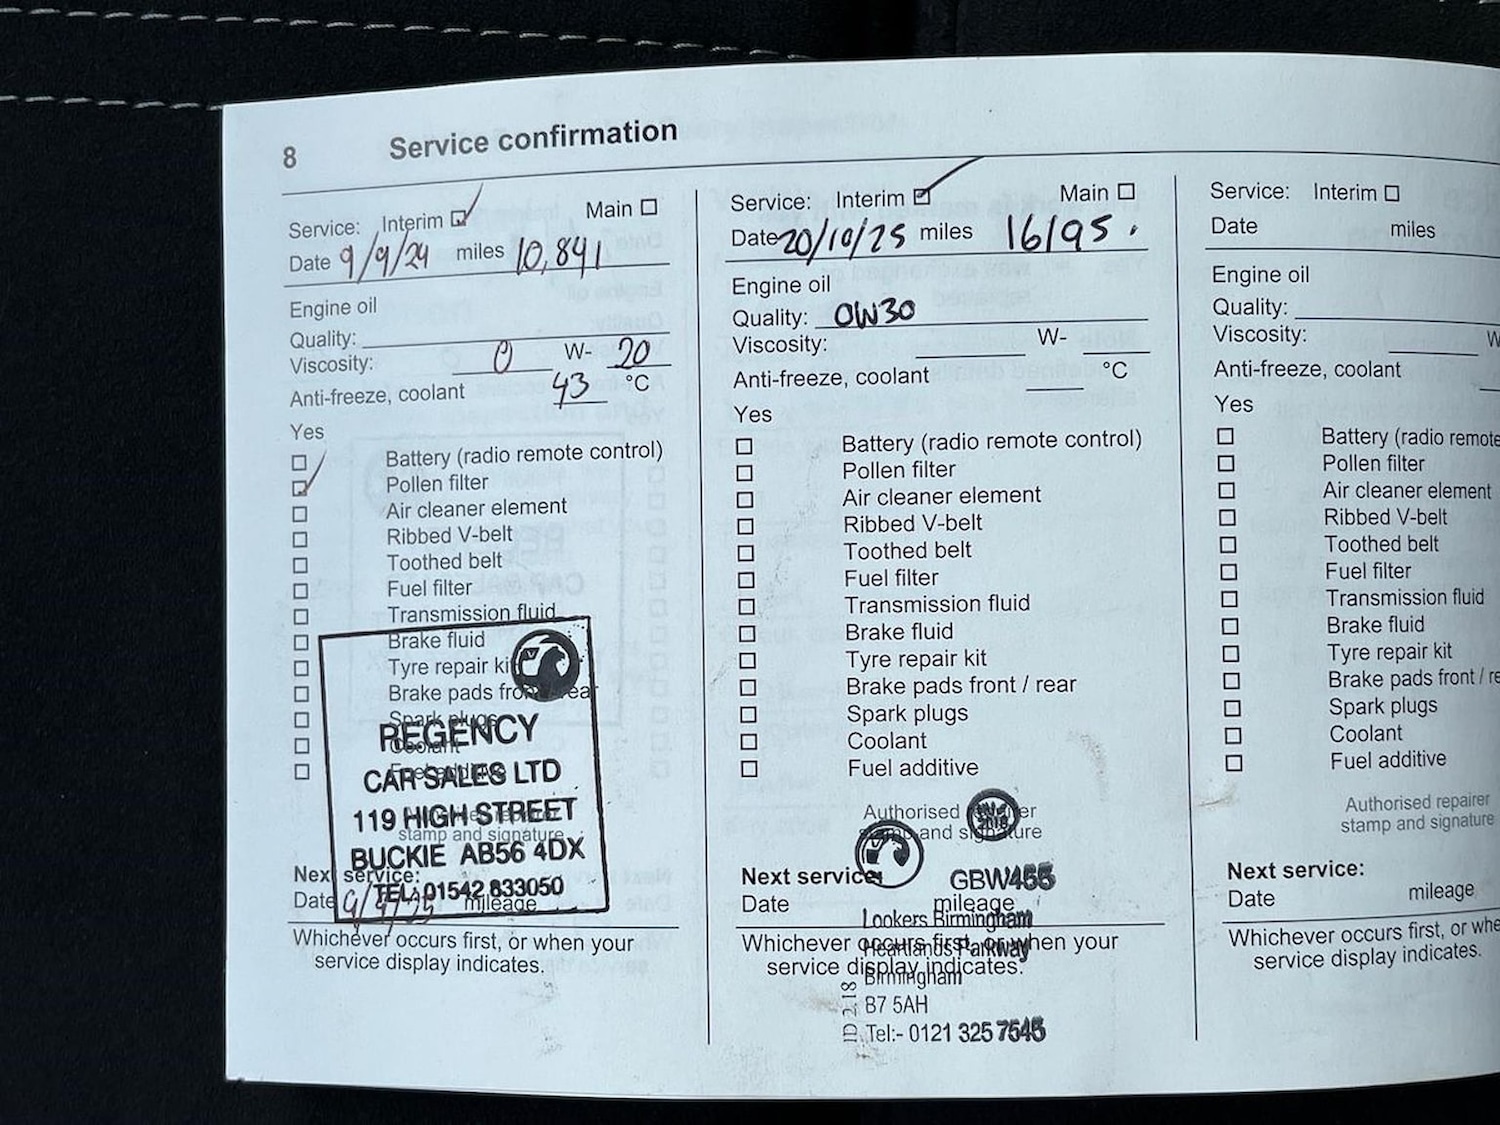 8 Service confirmation
Service: Interim Main
Date 9/9/24 miles 10,841
Engine oil
Quality:
Viscosity: 0 W- 20
Anti-freeze, coolant 43 °C
Yes
Battery (radio remote control)
Pollen filter
Air cleaner element
Ribbed V-belt
Toothed belt
Fuel filter
Transmission fluid
Brake fluid
Tyre repair kit
Brake pads front / rear
Spark plugs
Coolant
Fuel additive
Authorised repairer
stamp and signature
REGENCY
CAR SALES LTD
119 HIGH STREET
BUCKIE AB56 4DX
TEL: 01542 833050
Next service:
Date 9/9/25 mileage
Whichever occurs first, or when your
service display indicates.
Service: Interim Main
Date 20/10/25 miles 16195.
Engine oil
Quality: 0W30
Viscosity: W-
Anti-freeze, coolant °C
Yes
Battery (radio remote control)
Pollen filter
Air cleaner element
Ribbed V-belt
Toothed belt
Fuel filter
Transmission fluid
Brake fluid
Tyre repair kit
Brake pads front / rear
Spark plugs
Coolant
Fuel additive
Authorised repairer
stamp and signature
Next service:
GBW455
Date mileage
Lookers Birmingham
Heartlands Parkway
Birmingham
B7 5AH
Tel:- 0121 325 7545
ID 218
Whichever occurs first, or when your
service display indicates.
Service: Interim
Date miles
Engine oil
Quality:
Viscosity: W
Anti-freeze, coolant
Yes
Battery (radio remote
Pollen filter
Air cleaner element
Ribbed V-belt
Toothed belt
Fuel filter
Transmission fluid
Brake fluid
Tyre repair kit
Brake pads front / re
Spark plugs
Coolant
Fuel additive
Authorised repairer
stamp and signature
Next service:
Date mileage
Whichever occurs first, or whe
service display indicates.